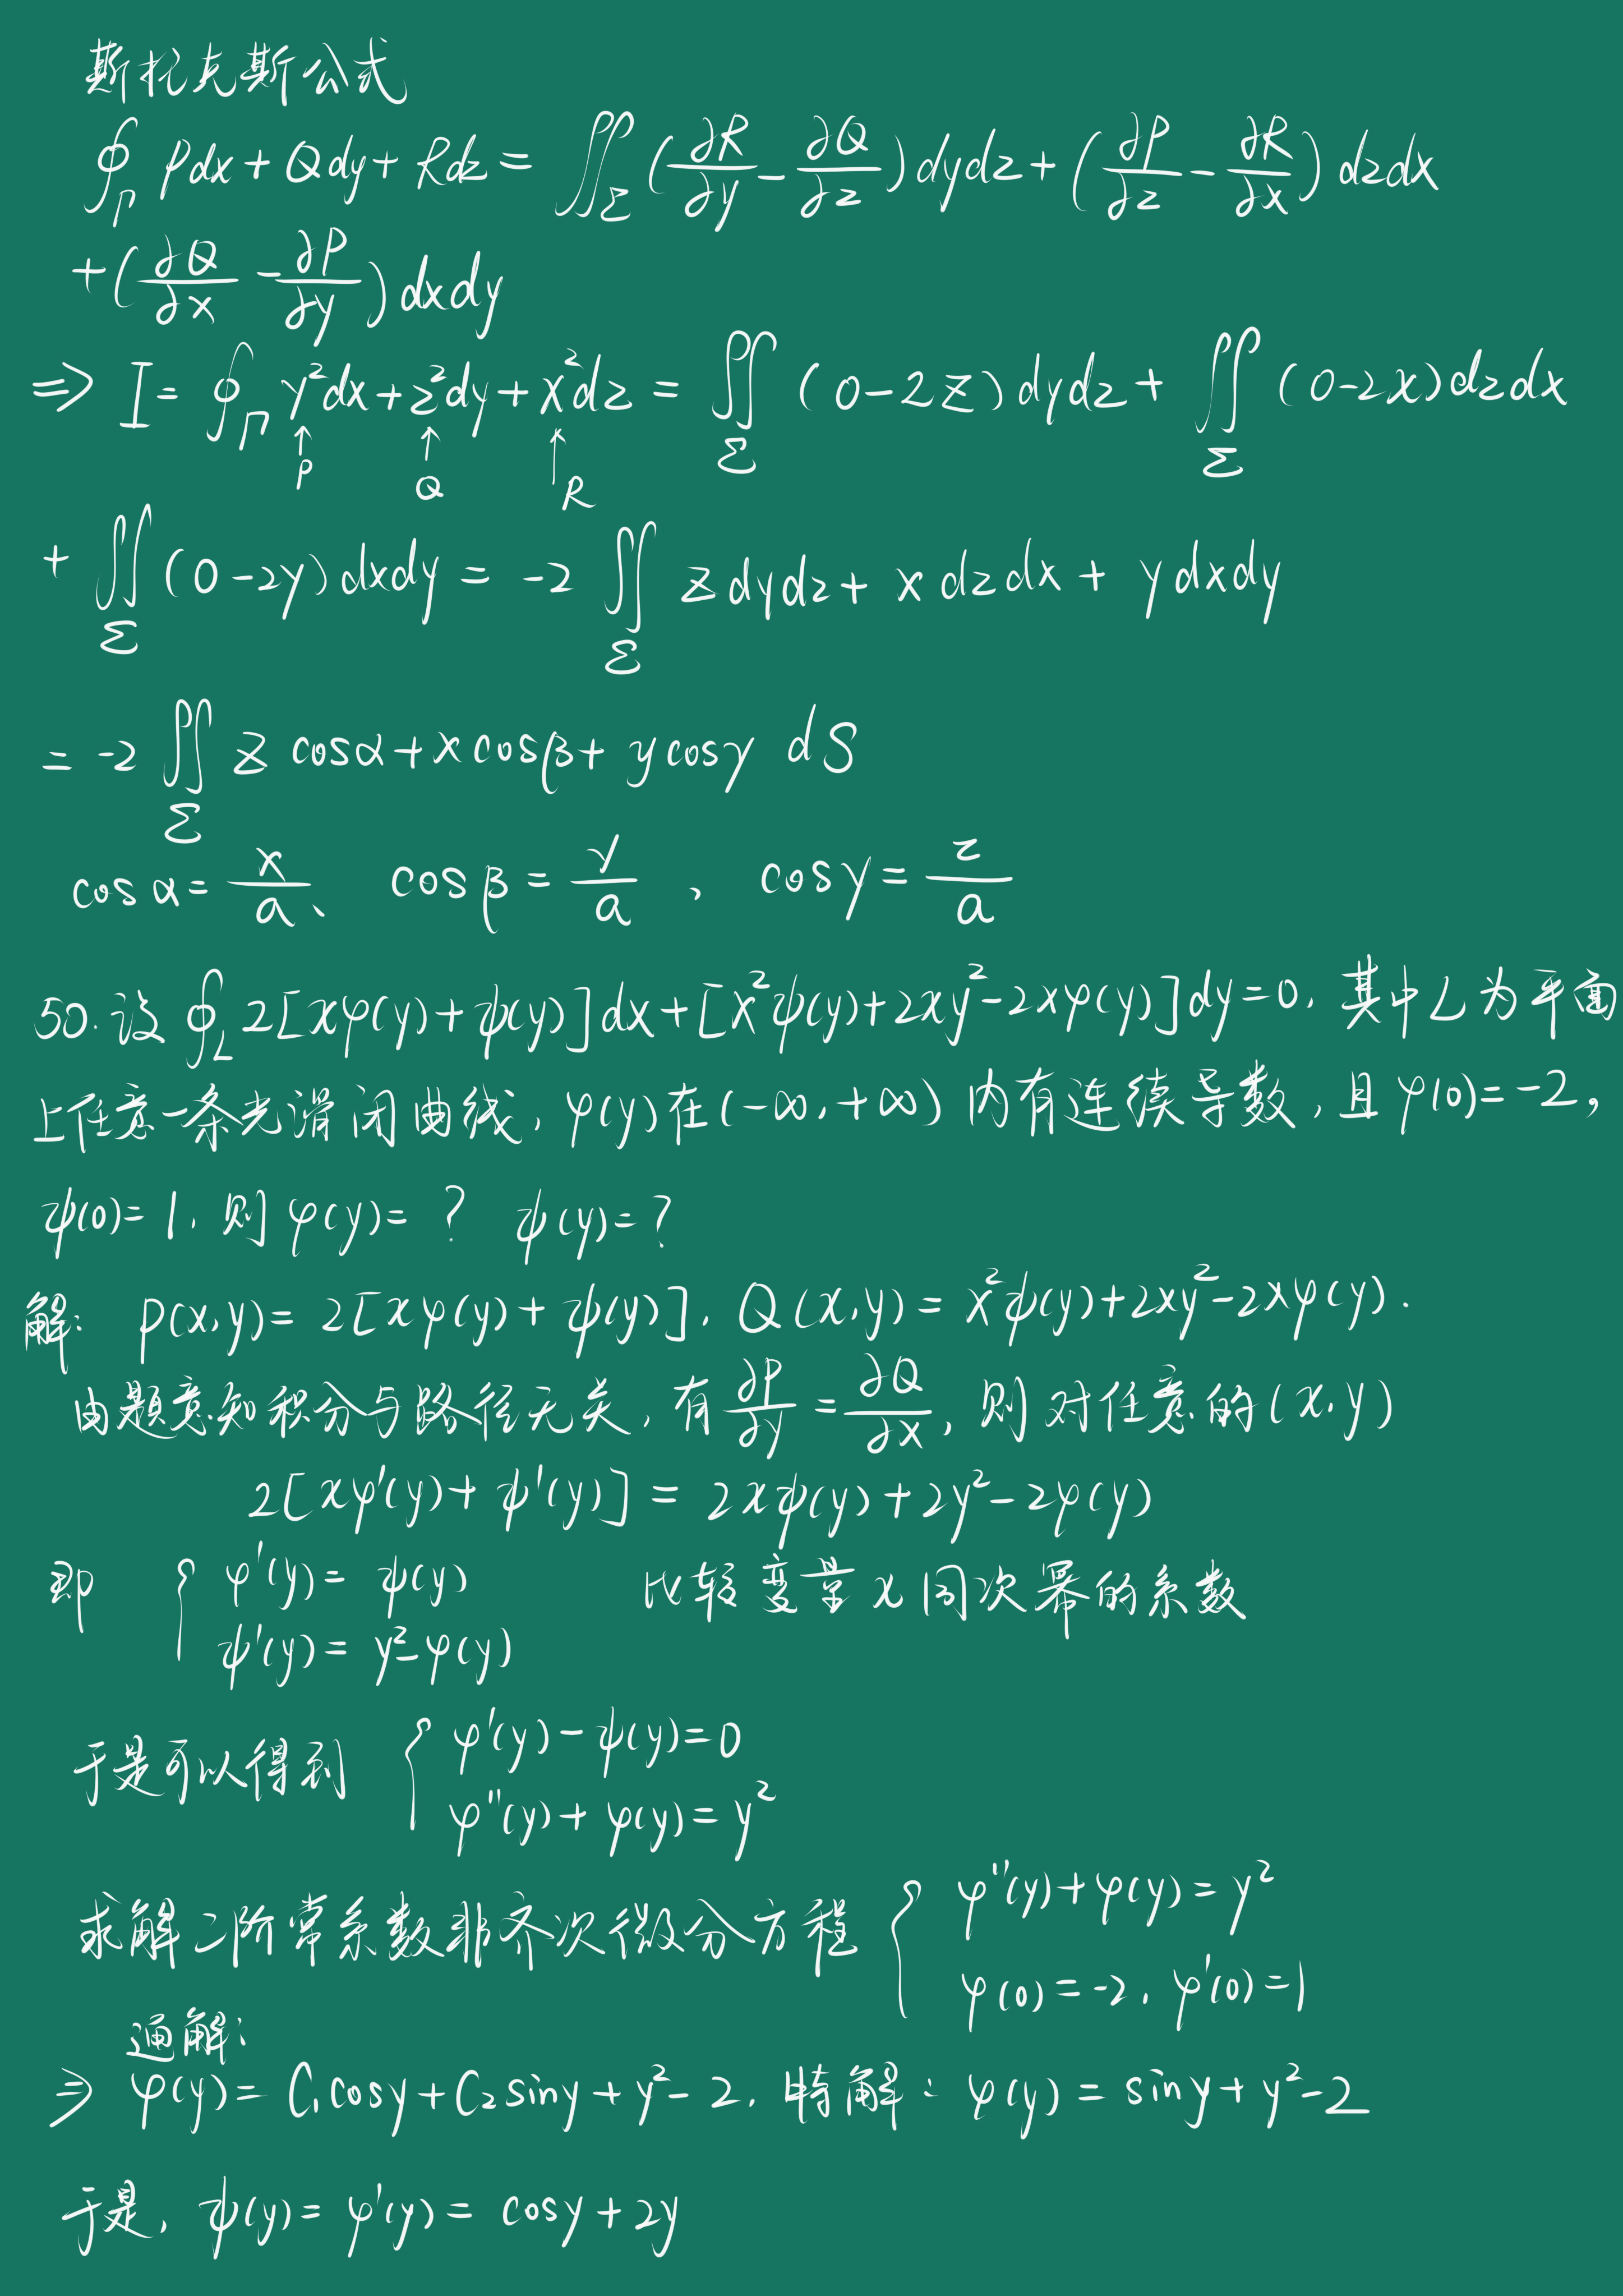 斯托克斯公式
∮_Γ Pdx+Qdy+Rdz = ∬_Σ (∂R/∂y - ∂Q/∂z) dydz + (∂P/∂z - ∂R/∂x) dzdx
+ (∂Q/∂x - ∂P/∂y) dxdy
⇒ I = ∮_Γ y²dx+z²dy+x²dz = ∬_Σ (0-2z)dydz + ∬_Σ (0-2x)dzdx
↑P ↑Q ↑R
+ ∬_Σ (0-2y)dxdy = -2 ∬_Σ zdydz + xdzdx + ydxdy
= -2 ∬_Σ z cosα + x cosβ + y cosγ dS
cosα = x/a、 cosβ = y/a , cosγ = z/a
50. 设 ∮_L 2[xφ(y)+ψ(y)]dx+[x²ψ(y)+2xy²-2xφ(y)]dy=0, 其中L为平面
上任意一条光滑闭曲线, φ(y)在(-∞,+∞)内有连续导数, 且φ(0)=-2,
ψ(0)=1, 则φ(y)=? ψ(y)=?
解: P(x,y)=2[xφ(y)+ψ(y)], Q(x,y)=x²ψ(y)+2xy²-2xφ(y).
由题意知积分与路径无关, 有 ∂P/∂y = ∂Q/∂x, 则对任意的(x,y)
2[xφ'(y)+ψ'(y)] = 2xψ(y)+2y²-2φ(y)
即 { φ'(y)=ψ(y) 比较变量x同次幂的系数
ψ'(y)=y²-φ(y)
于是可以得到 { φ'(y)-ψ(y)=0
φ''(y)+φ(y)=y²
求解二阶常系数非齐次微分方程 { φ''(y)+φ(y)=y²
φ(0)=-2, φ'(0)=1
通解:
⇒ φ(y)=C₁cosy+C₂siny+y²-2, 特解: φ(y)=siny+y²-2
于是, ψ(y)=φ'(y)=cosy+2y